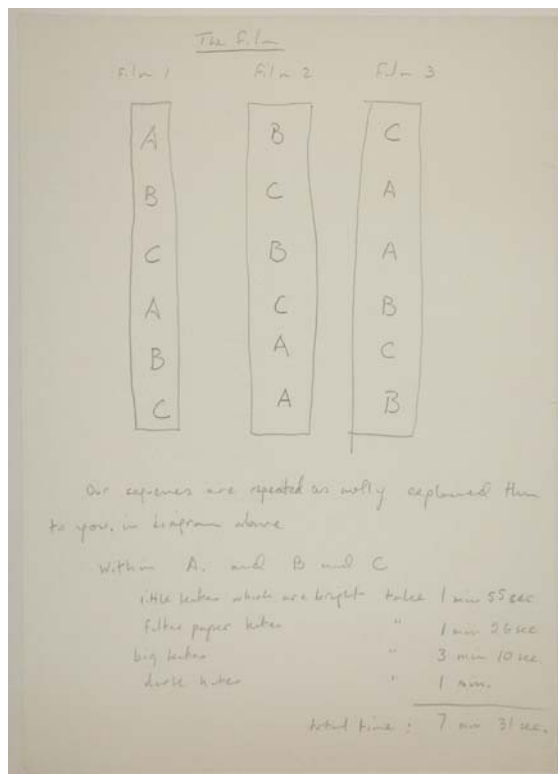 The Film
Film 1 Film 2 Film 3
A B C
B C A
C B A
A C B
B A C
C A B
Our sequences are repeated as molly explained them
to you, in diagram above
Within A. and B and C
little kites which are bright take 1 min 55 sec
filter paper kites " 1 min 26 sec
big kites " 3 min 10 sec.
dark kites " 1 min.
total time : 7 min 31 sec.